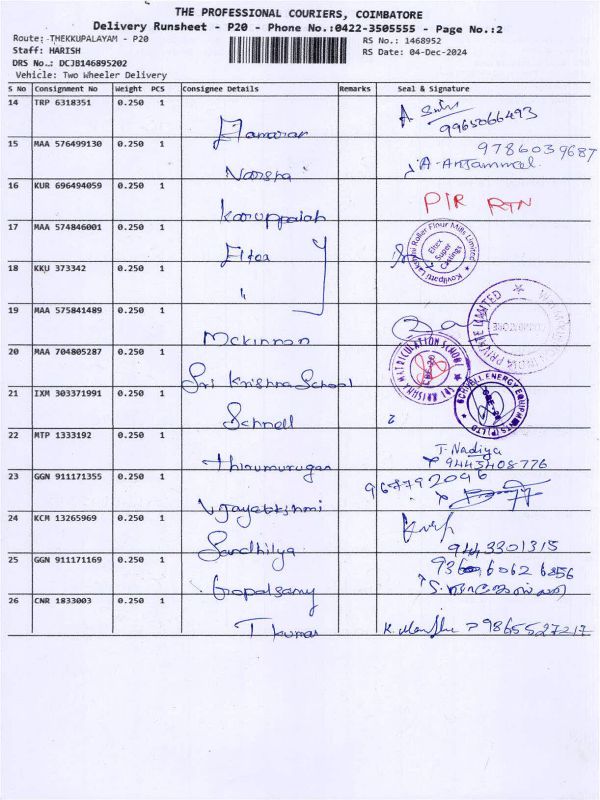 THE PROFESSIONAL COURIERS, COIMBATORE
Delivery Runsheet - P20 - Phone No.:0422-3505555 - Page No.:2
Route: THEKKUPALAYAM - P20
RS No.: 1468952
Staff: HARISH
RS Date: 04-Dec-2024
DRS No.: DCJB146895202
Vehicle: Two Wheeler Delivery
S No Consignment No Weight PCS Consignee Details Remarks Seal & Signature
14 TRP 6318351 0.250 1
9965066493
15 MAA 576499130 0.250 1 9786039687
A. Anjammal.
16 KUR 696494059 0.250 1
Karuppaiah PIR RTN
17 MAA 574846001 0.250 1 Eltex
Kovilpatti Lakshmi Roller Flour Mills Limited
Eltex Super Castings
18 KKU 373342 0.250 1 "
19 MAA 575841489 0.250 1
Mckinnon
INDIA PRIVATE LIMITED
COIMBATORE
20 MAA 704805287 0.250 1
Sri Krishna School
SRI KRISHNA MATRICULATION SCHOOL
21 IXM 303371991 0.250 1
Schnell
SCHNELL ENERGY EQUIPMENTS (P) LTD
22 MTP 1333192 0.250 1
Thirumurugan
T. Nadiya
9443408776
23 GGN 911171355 0.250 1
967792096
Vijayalakshmi
24 KCM 13265969 0.250 1
Sandhilya
9443301315
25 GGN 911171169 0.250 1
Gopalsamy
26 CNR 1833003 0.250 1
T kumar
9865527217